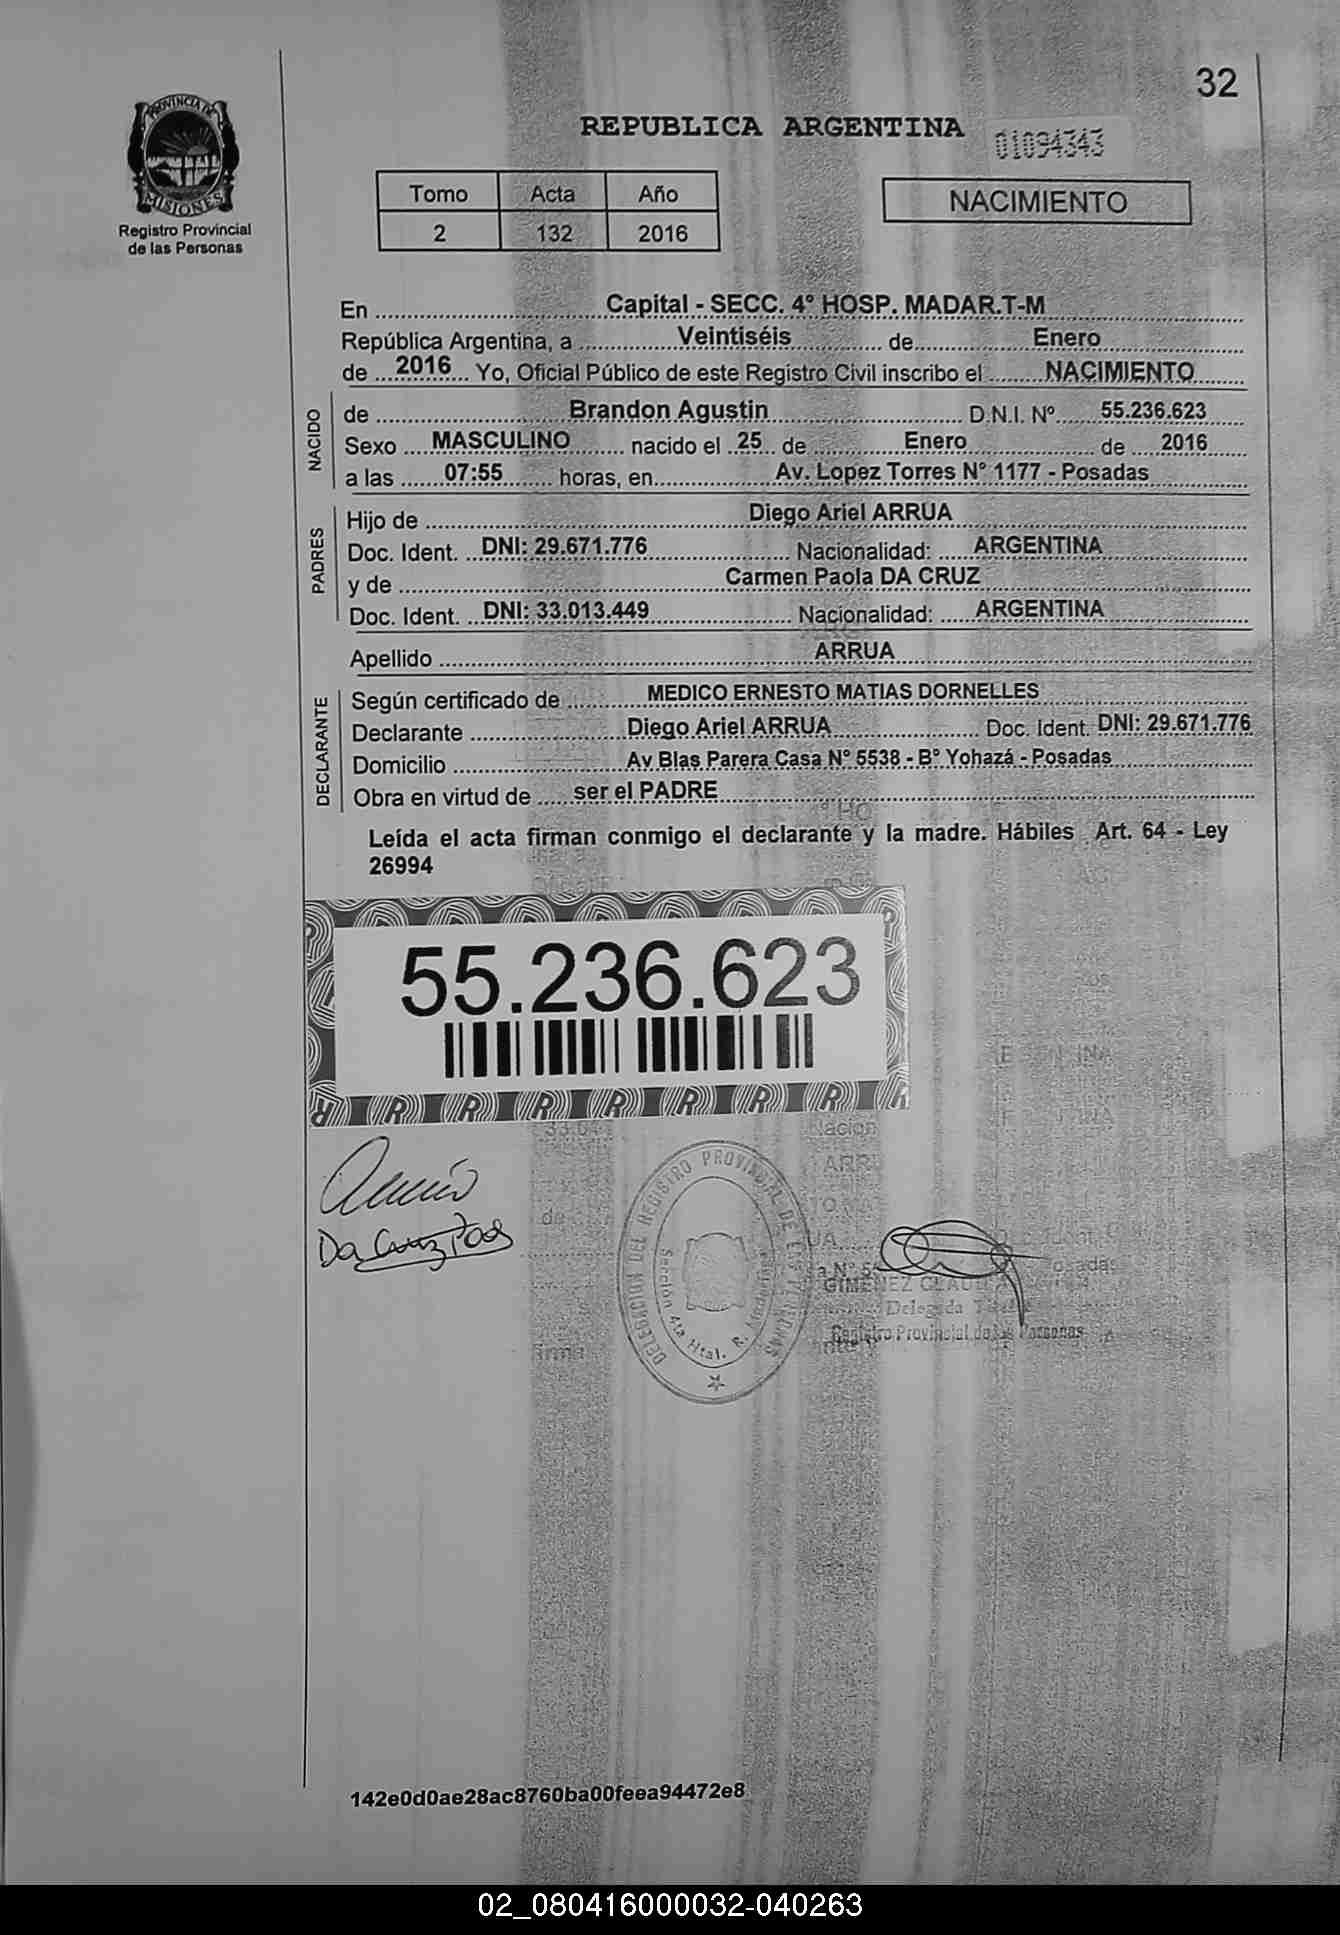 32
PROVINCIA DE
MISIONES
Registro Provincial
de las Personas
REPUBLICA ARGENTINA
01094343
Tomo Acta Año
2 132 2016
NACIMIENTO
En Capital - SECC. 4° HOSP. MADAR.T-M
República Argentina, a Veintiséis de Enero
de 2016 Yo, Oficial Público de este Registro Civil inscribo el NACIMIENTO
NACIDO
de Brandon Agustin D N.I. Nº 55.236.623
Sexo MASCULINO nacido el 25 de Enero de 2016
a las 07:55 horas, en Av. Lopez Torres N° 1177 - Posadas
PADRES
Hijo de Diego Ariel ARRUA
Doc. Ident. DNI: 29.671.776 Nacionalidad: ARGENTINA
y de Carmen Paola DA CRUZ
Doc. Ident. DNI: 33.013.449 Nacionalidad: ARGENTINA
Apellido ARRUA
DECLARANTE
Según certificado de MEDICO ERNESTO MATIAS DORNELLES
Declarante Diego Ariel ARRUA Doc. Ident. DNI: 29.671.776
Domicilio Av Blas Parera Casa N° 5538 - B° Yohazá - Posadas
Obra en virtud de ser el PADRE
Leída el acta firman conmigo el declarante y la madre. Hábiles Art. 64 - Ley
26994
55.236.623
Da Cruz
DELEGACION DEL REGISTRO PROVINCIAL DE LAS PERSONAS
Sección 4ta Htal. R.
GIMENEZ
Delegada
Registro Provincial de las Personas
142e0d0ae28ac8760ba00feea94472e8
02_080416000032-040263